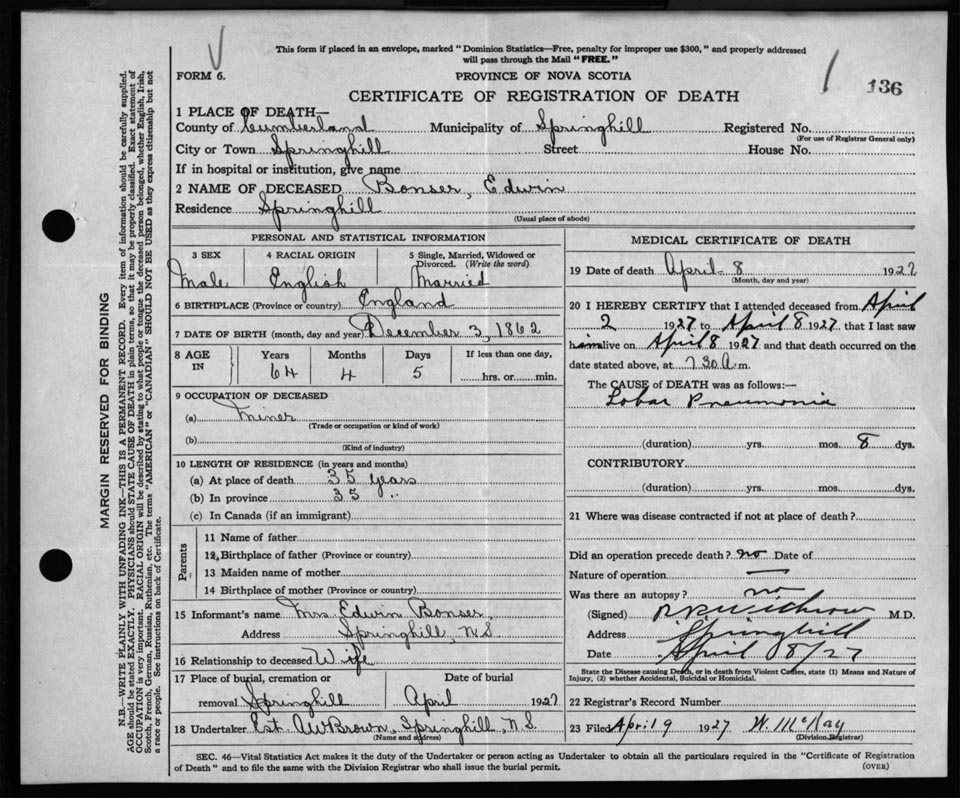 This form if placed in an envelope, marked "Dominion Statistics—Free, penalty for improper use $300," and properly addressed
will pass through the Mail "FREE."
FORM 6.
PROVINCE OF NOVA SCOTIA
136
CERTIFICATE OF REGISTRATION OF DEATH
1 PLACE OF DEATH—
County of Cumberland Municipality of Springhill Registered No.
(For use of Registrar General only)
City or Town Springhill Street House No.
If in hospital or institution, give name
2 NAME OF DECEASED Bonser, Edwin
Residence Springhill
(Usual place of abode)
PERSONAL AND STATISTICAL INFORMATION
3 SEX 4 RACIAL ORIGIN 5 Single, Married, Widowed or
Divorced. (Write the word)
Male English Married
6 BIRTHPLACE (Province or country) England
7 DATE OF BIRTH (month, day and year) December 3, 1862
8 AGE IN Years Months Days If less than one day,
64 4 5 hrs. or min.
9 OCCUPATION OF DECEASED
(a) Miner
(Trade or occupation or kind of work)
(b)
(Kind of industry)
10 LENGTH OF RESIDENCE (in years and months)
(a) At place of death 35 years
(b) In province 35 "
(c) In Canada (if an immigrant)
Parents
11 Name of father
12 Birthplace of father (Province or country)
13 Maiden name of mother
14 Birthplace of mother (Province or country)
15 Informant's name Mrs Edwin Bonser,
Address Springhill, N.S.
16 Relationship to deceased Wife
17 Place of burial, cremation or Date of burial
removal Springhill April 1927
18 Undertaker Est. AW Brown, Springhill, N.S.
(Name and address)
MEDICAL CERTIFICATE OF DEATH
19 Date of death April 8 1927
(Month, day and year)
20 I HEREBY CERTIFY that I attended deceased from April
2 1927 to April 8 1927 that I last saw
him alive on April 8 1927 and that death occurred on the
date stated above, at 7.30 A.m.
The CAUSE OF DEATH was as follows:—
Lobar Pneumonia
(duration) yrs. mos. 8 dys.
CONTRIBUTORY
(duration) yrs. mos. dys.
21 Where was disease contracted if not at place of death?
Did an operation precede death? no Date of
Nature of operation —
Was there an autopsy? no
(Signed) M.D.
Address Springhill
Date April 8/27
State the Disease causing Death, or in death from Violent Causes, state (1) Means and Nature of
Injury, (2) whether Accidental, Suicidal or Homicidal.
22 Registrar's Record Number
23 Filed April 9 1927 W. McKay
(Division Registrar)
SEC. 46—Vital Statistics Act makes it the duty of the Undertaker or person acting as Undertaker to obtain all the particulars required in the "Certificate of Registration
of Death" and to file the same with the Division Registrar who shall issue the burial permit.
(OVER)
MARGIN RESERVED FOR BINDING
N.B.—WRITE PLAINLY WITH UNFADING INK—THIS IS A PERMANENT RECORD. Every item of information should be carefully supplied.
AGE should be stated EXACTLY. PHYSICIANS should STATE CAUSE OF DEATH in plain terms, so that it may be properly classified. Exact statement of
OCCUPATION is very important. RACIAL ORIGIN will be described by stating to what people or tongue the deceased person belonged, whether English, Irish,
Scotch, French, German, Russian, Ruthenian, etc. The terms "AMERICAN" or "CANADIAN" SHOULD NOT BE USED as they express citizenship but not
a race or people. See instructions on back of Certificate.